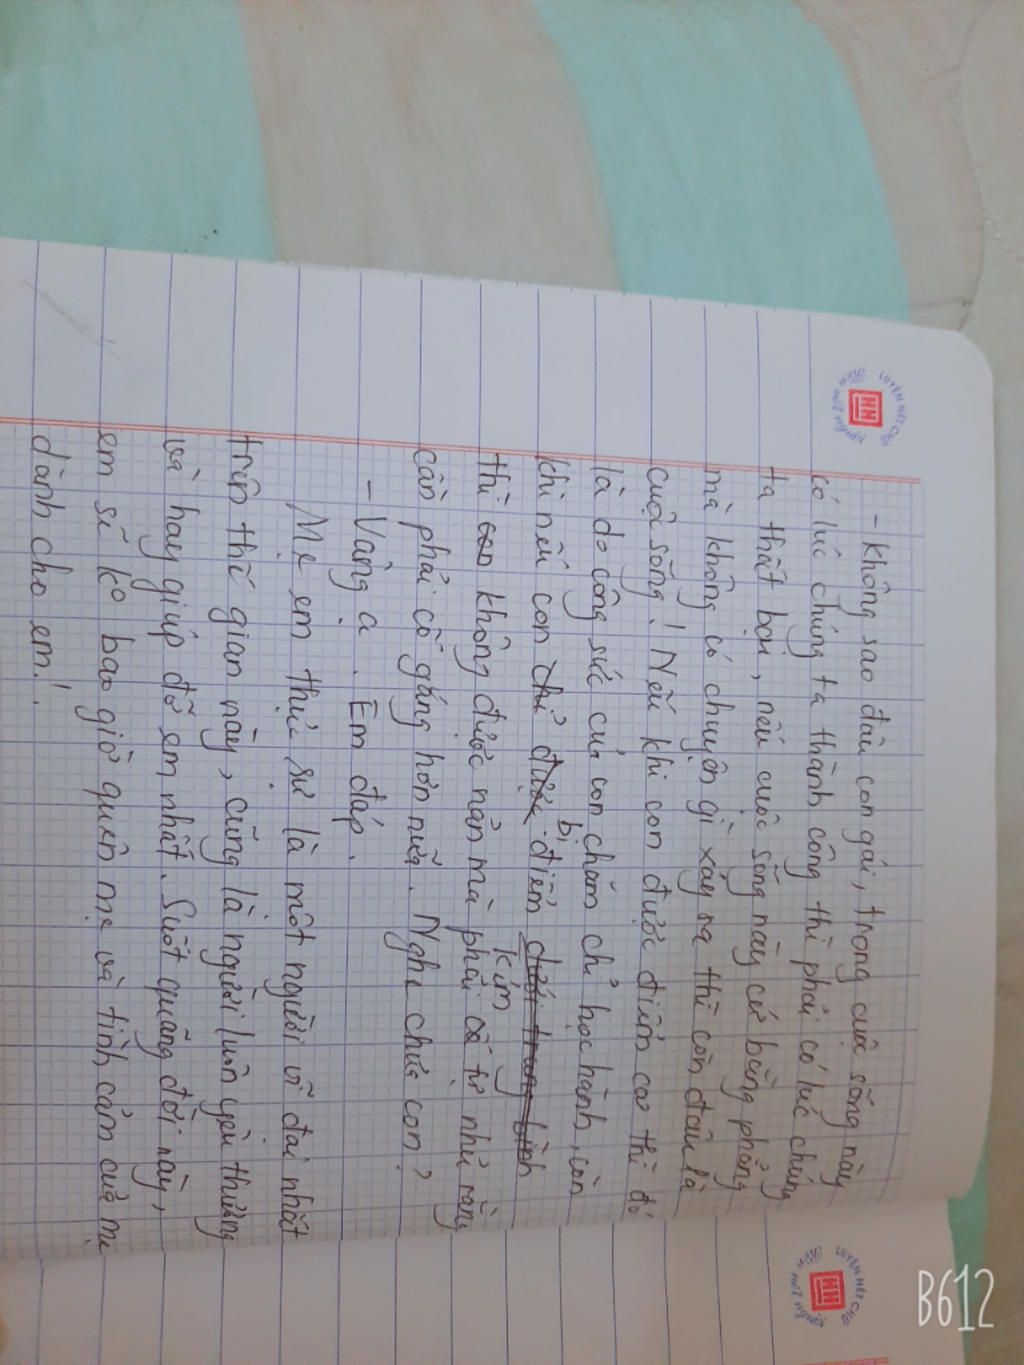 LUYỆN NÉT CHỮ
RÈN NẾT NGƯỜI
HH
- Không sao đâu con gái, trong cuộc sống này
có lúc chúng ta thành công thì phải có lúc chúng
ta thất bại, nếu cuộc sống này cứ bằng phẳng
mà không có chuyện gì xảy ra thì còn đâu là
cuộc sống! Nếu khi con được điểm cao thì đó
là do công sức của con chăm chỉ học hành, còn
khi nếu con bị điểm kém
thì không được nản mà phải tự nhủ rằng
cần phải cố gắng hơn nữa. Nghe chưa con?
- Vâng ạ. Em đáp.
Mẹ em thực sự là một người vĩ đại nhất
trên thế gian này, cũng là người luôn yêu thương
và hay giúp đỡ em nhất. Suốt quãng đời này,
em sẽ ko bao giờ quên mẹ và tình cảm của mẹ
dành cho em!
LUYỆN NÉT CHỮ
RÈN NẾT NGƯỜI
HH
B612